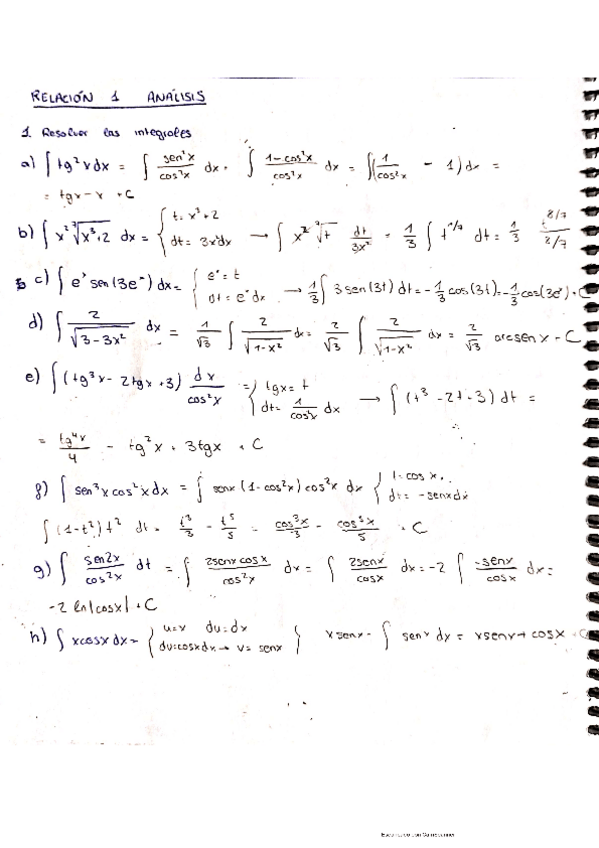 RELACIÓN 1 ANÁLISIS
1. Resolver las integrales
a) ∫ tg²x dx = ∫ sen²x/cos²x dx = ∫ (1-cos²x)/cos²x dx = ∫(1/cos²x - 1) dx =
= tgx - x + C
b) ∫ x² ⁷√(x³+2) dx = { t = x³+2 dt = 3x²dx → ∫ x² ⁷√t dt/3x² = 1/3 ∫ t^(1/7) dt = 1/3 t^(8/7)/(8/7)
c) ∫ eˣ sen(3eˣ) dx = { eˣ = t dt = eˣ dx → 1/3 ∫ 3 sen(3t) dt = -1/3 cos(3t) = -1/3 cos(3eˣ) + C
d) ∫ 2/√(3-3x²) dx = 1/√3 ∫ 2/√(1-x²) dx = 2/√3 ∫ 2/√(1-x²) dx = 2/√3 arcsen x + C
e) ∫ (tg³x - 2tgx + 3) dx/cos²x = { tgx = t dt = 1/cos²x dx → ∫ (t³ - 2t + 3) dt =
= tg⁴x/4 - tg²x + 3tgx + C
f) ∫ sen³x cos²x dx = ∫ senx (1-cos²x) cos²x dx { t = cos x dt = -senx dx
∫ (1-t²) t² dt = t³/3 - t⁵/5 = cos³x/3 - cos⁵x/5 + C
g) ∫ sen2x/cos²x dt = ∫ 2senx cosx/cos²x dx = ∫ 2senx/cosx dx = -2 ∫ -senx/cosx dx =
-2 ln|cosx| + C
h) ∫ x cosx dx = { u=x du=dx dv=cosx dx → v = senx { x senx - ∫ senx dx = x senx + cosx + C
Escaneado con CamScanner